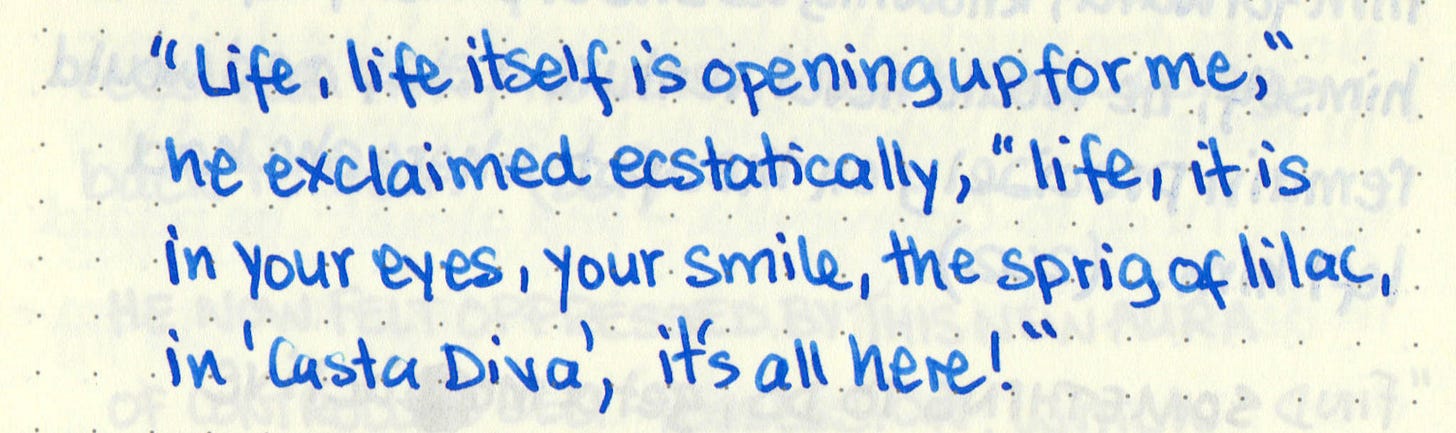 "Life, life itself is opening up for me,"
he exclaimed ecstatically, "life, it is
in your eyes, your smile, the sprig of lilac,
in 'Casta Diva', it's all here!"